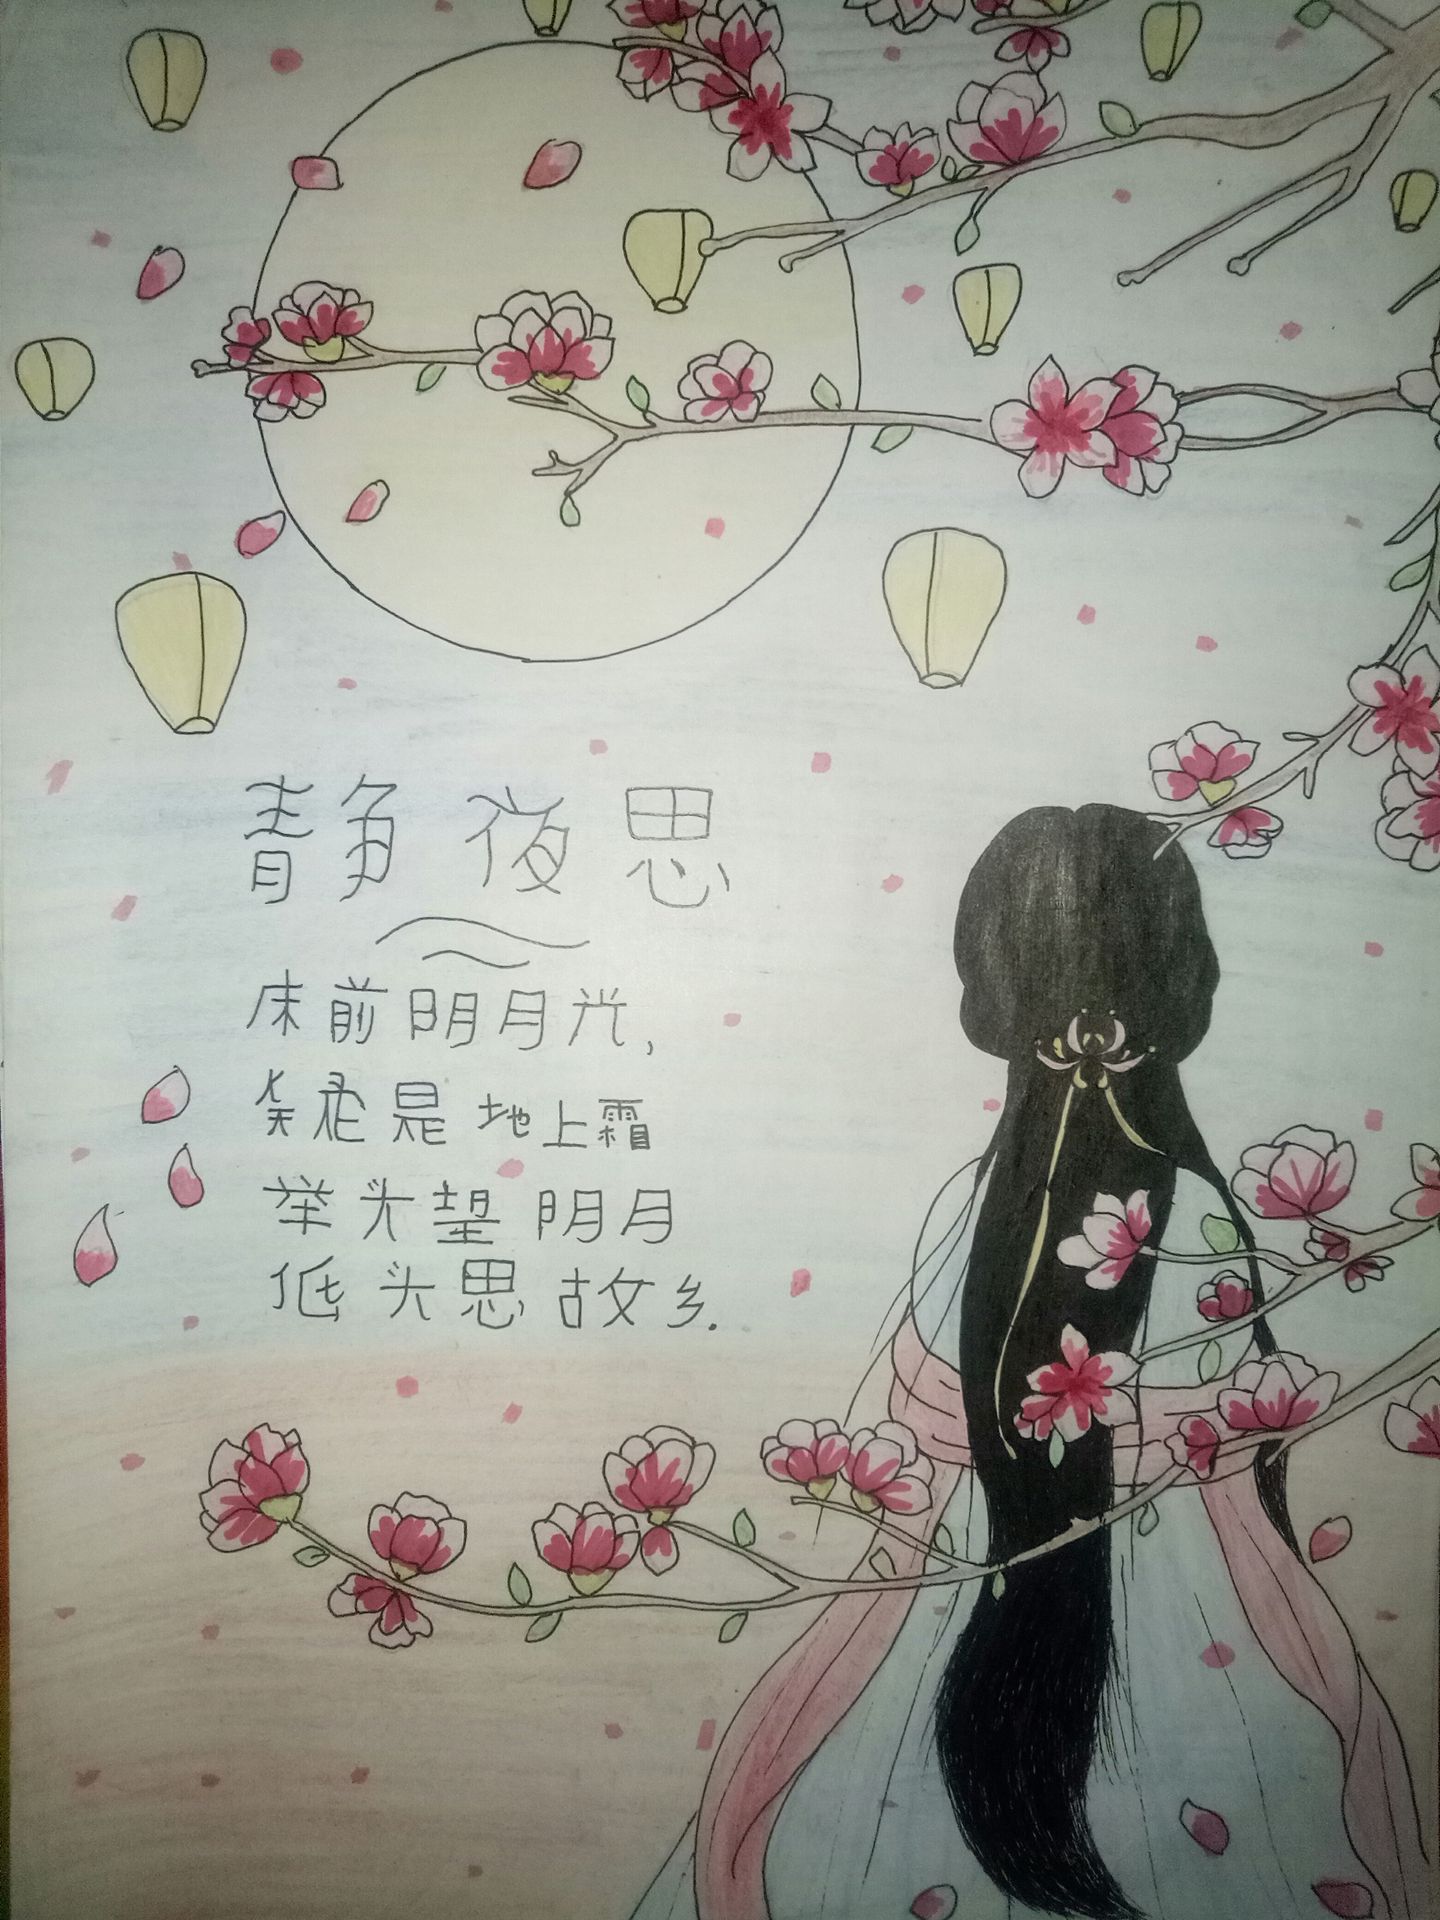 静夜思
床前明月光,
疑是地上霜
举头望明月
低头思故乡.